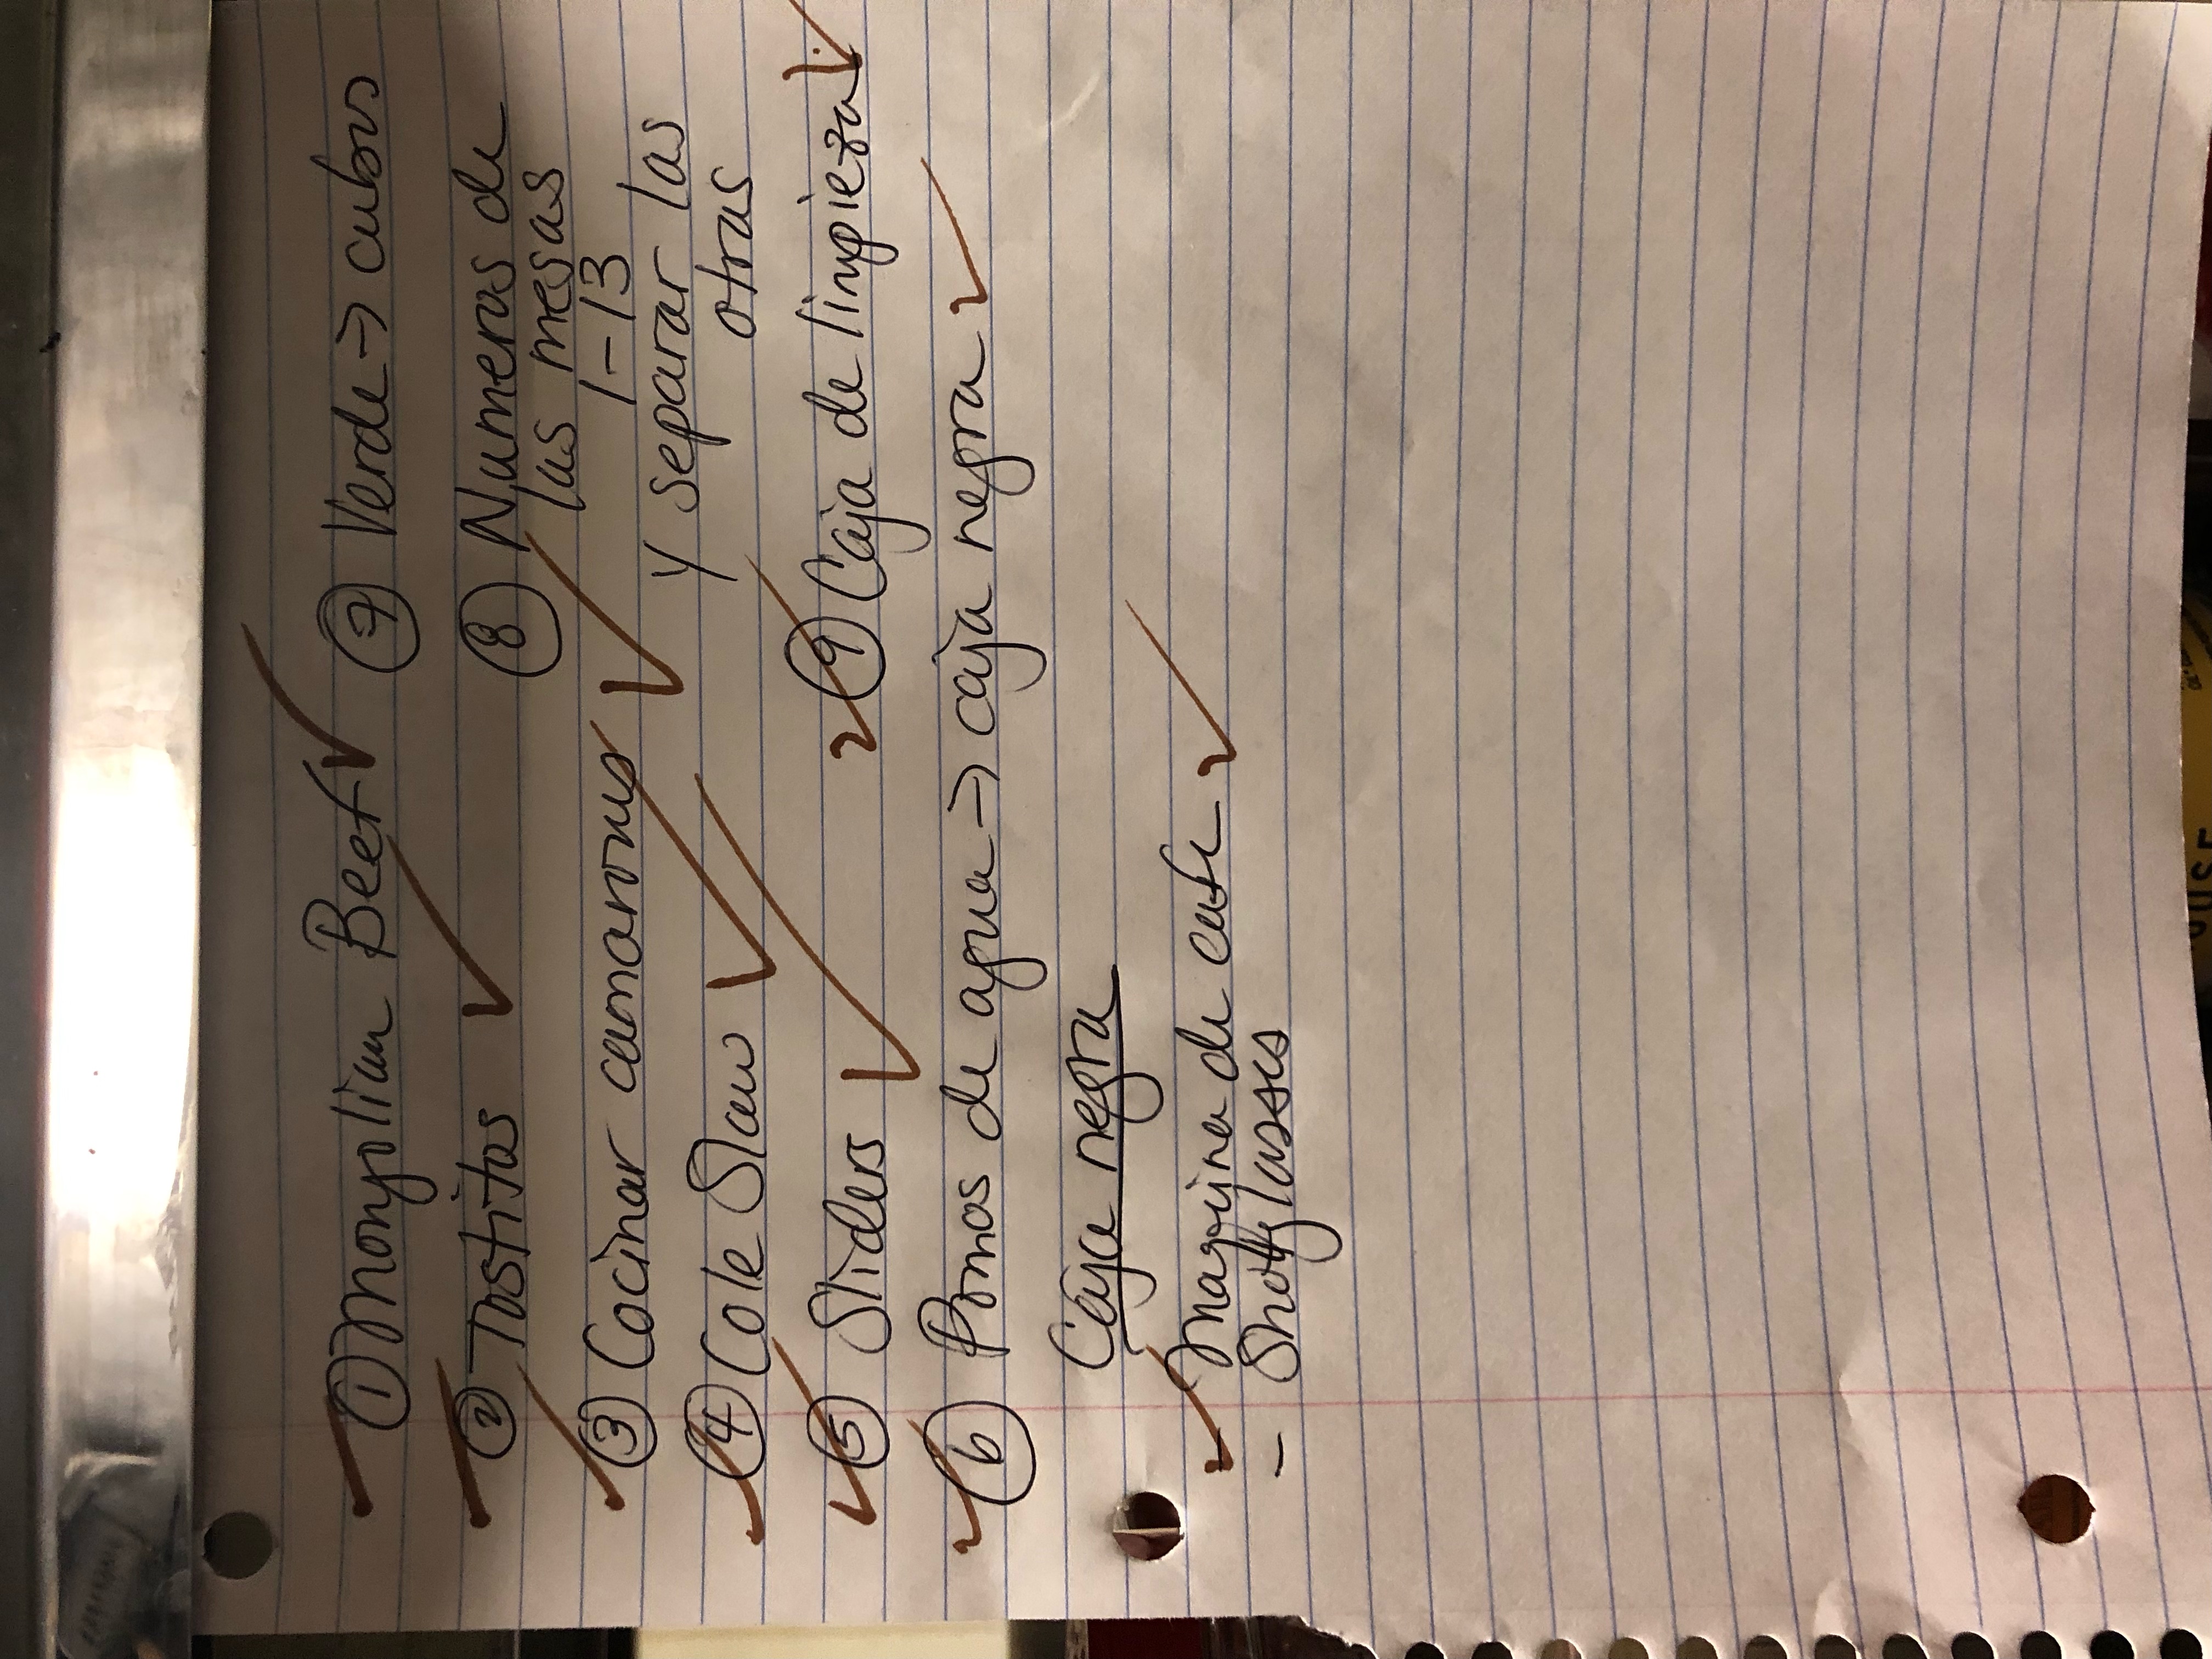 ① Mongolian Beef
② Tostitos
③ Cocinar camarones
④ Cole Slaw
⑤ Sliders
⑥ Pomos de agua → caja negra → caja negra
Caja negra
- Maquina de cafe
- Shotglasses
⑦ Verde → cubos
⑧ Numeros de
las mesas
1-13
y separar las
otras
⑨ Caja de limpieza